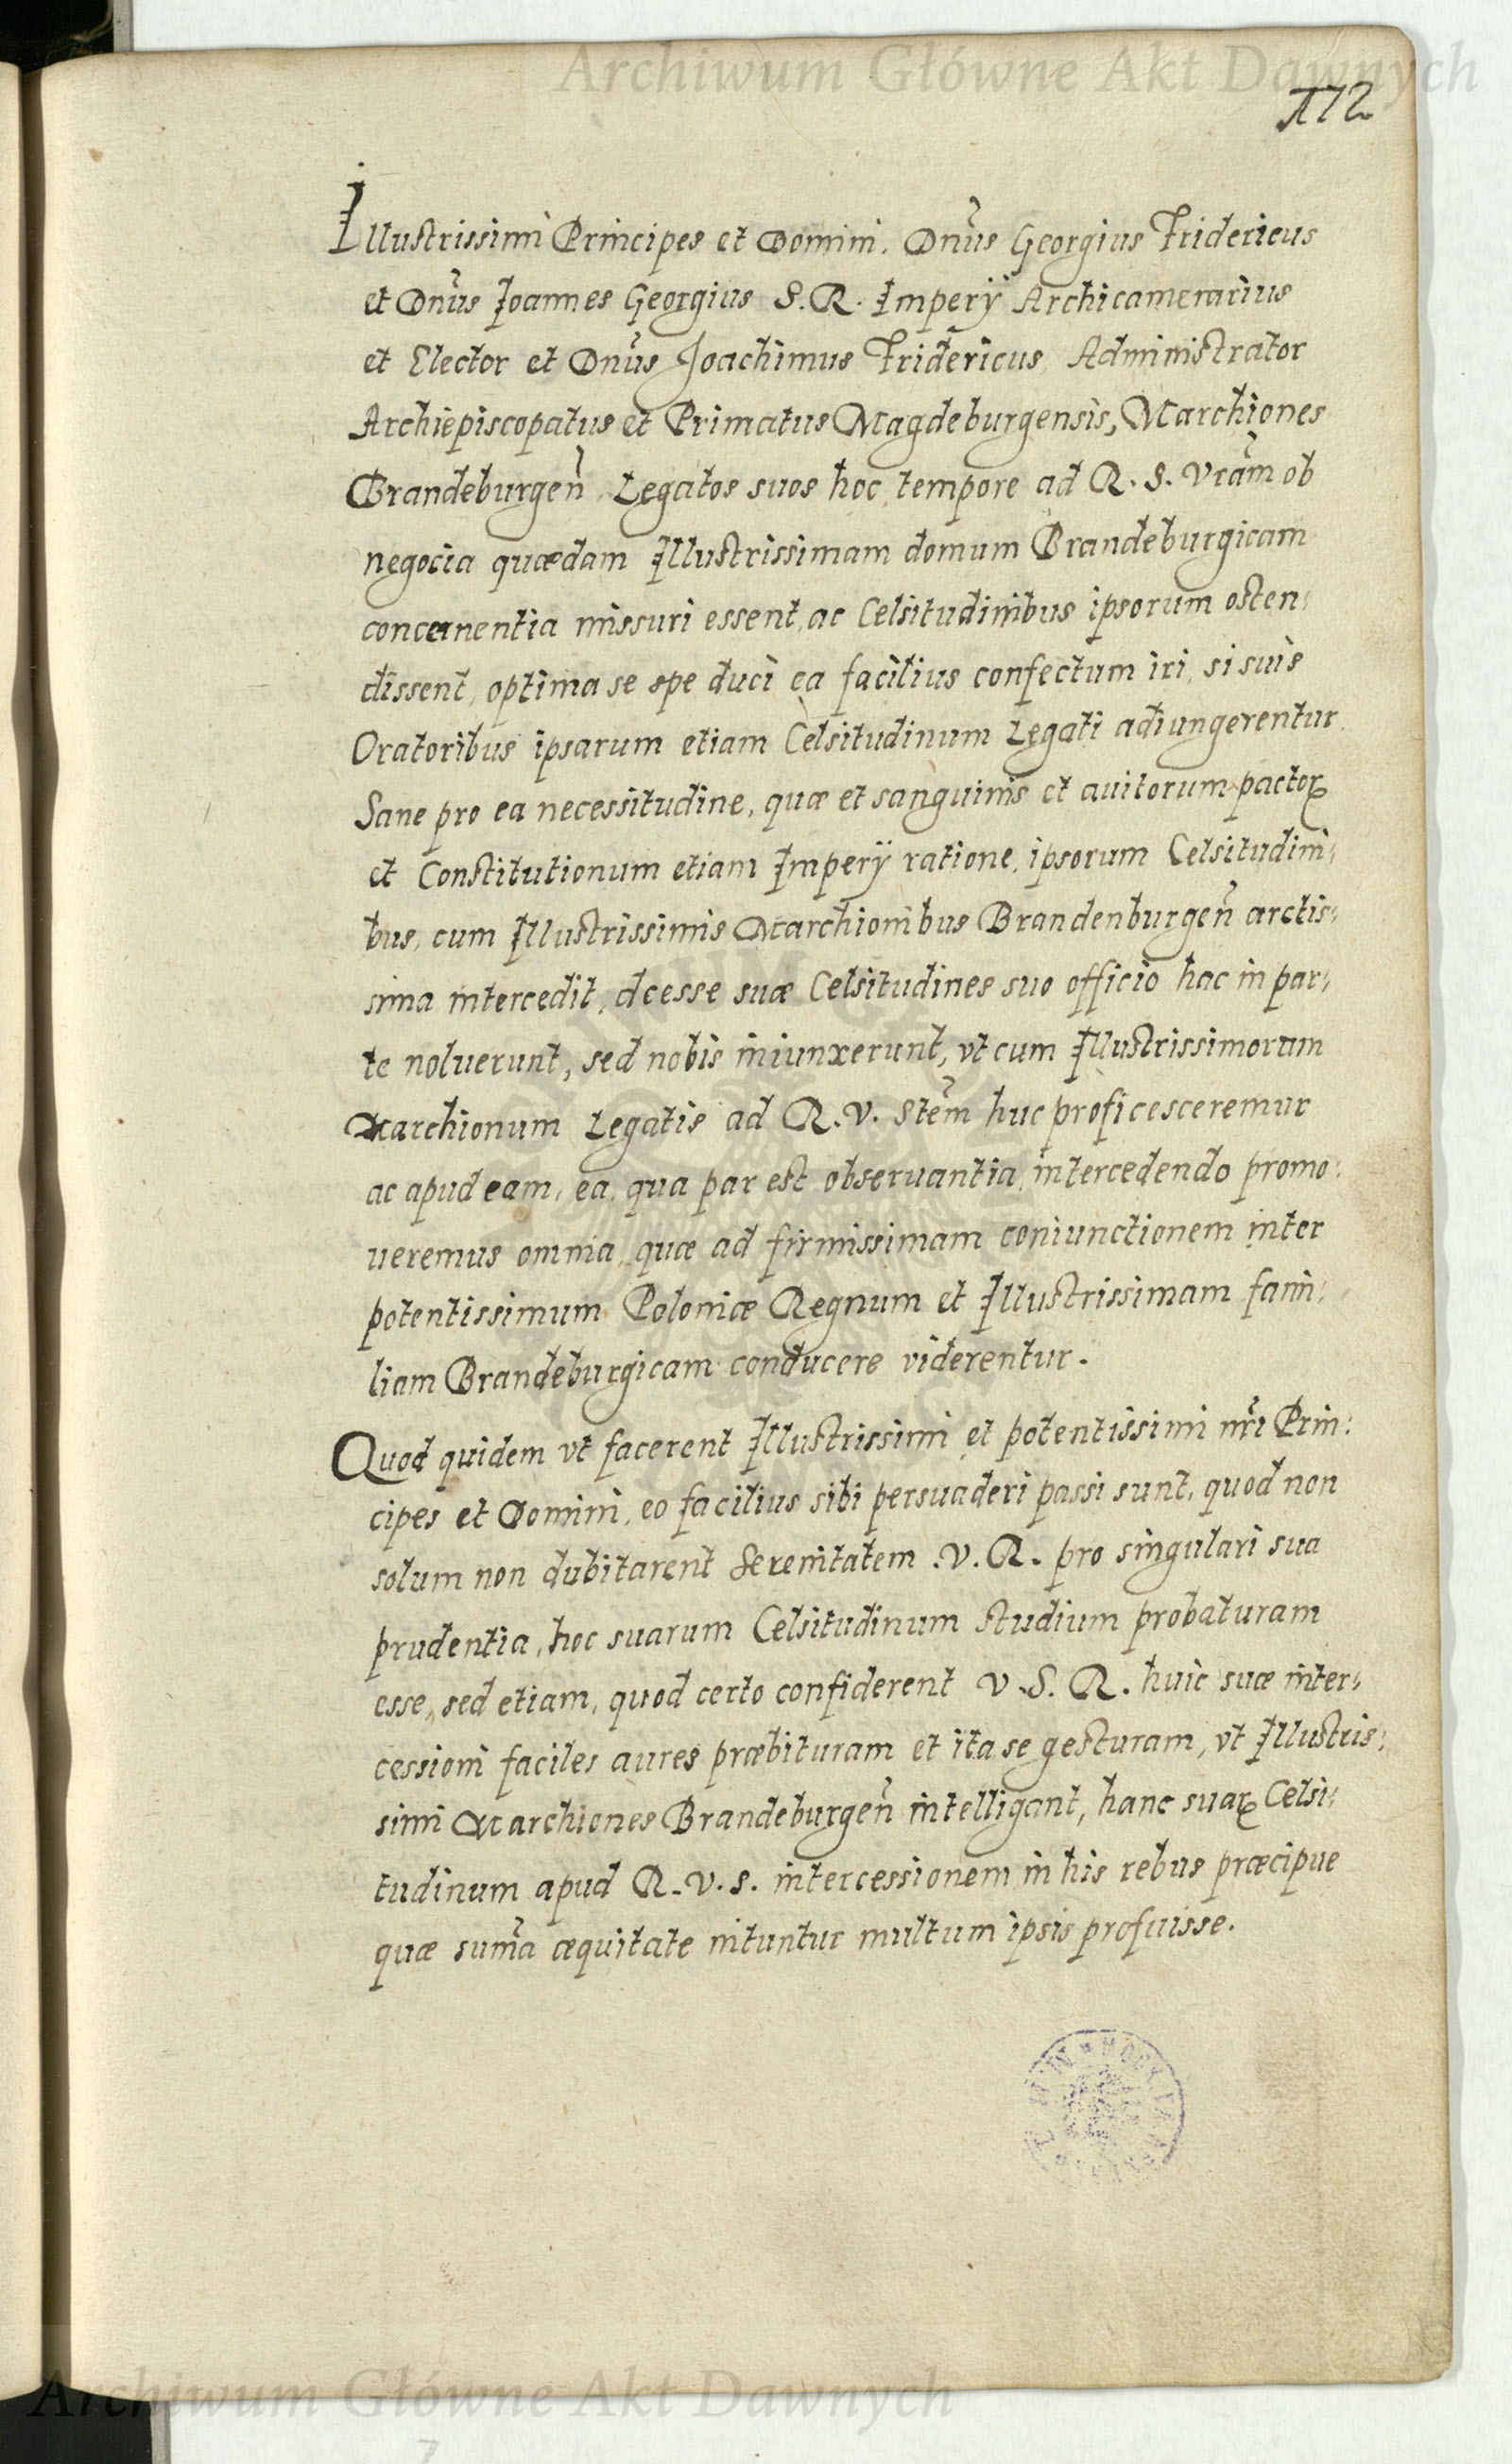 Archiwum Główne Akt Dawnych
172
Illustrissimi Principes et Domini. Dnūs Georgius Fridericus
et Dnūs Joannes Georgius S. R. Imperÿ Archicamerarius
et Elector et Dnūs Joachimus Fridericus Administrator
Archiepiscopatus et Primatus Magdeburgensis, Marchiones
Brandeburgeñ, Legatos suos hoc tempore ad R. S. Vrām ob
negocia quædam Illustrissimam domum Brandeburgicam
concernentia missuri essent, ac Celsitudinibus ipsorum osten:
dissent, optima se spe duci ea facilius confectum iri, si suis
Oratoribus ipsarum etiam Celsitudinum Legati adiungerentur.
Sane pro ea necessitudine, quæ et sanguinis et auitorum pactoꝝ
et Constitutionum etiam Imperÿ ratione, ipsorum Celsitudini:
bus, cum Illustrissimis Marchionibus Brandenburgeñ arctis:
sima intercedit, deesse suæ Celsitudines suo officio hac in par:
te noluerunt, sed nobis iniunxerunt, vt cum Illustrissimorum
Marchionum Legatis ad R. V. Stēm huc proficesceremur
ac apud eam, ea, qua par est obseruantia, intercedendo promo:
ueremus omnia, quæ ad firmissimam coniunctionem inter
potentissimum Poloniæ Regnum et Illustrissimam fami:
liam Brandeburgicam conducere viderentur.
Quod quidem vt facerent Illustrissimi et potentissimi nr̄i Prin:
cipes et Domini, eo facilius sibi persuaderi passi sunt, quod non
solum non dubitarent Serenitatem .V. R. pro singulari sua
prudentia, hoc suarum Celsitudinum studium probaturam
esse, sed etiam, quod certo confiderent V. S. R. huic suæ inter:
cessioni faciles aures præbituram et ita se gesturam, vt Illustris:
simi Marchiones Brandeburgeñ intelligant, hanc suaꝝ Celsi:
tudinum apud R. V. S. intercessionem in his rebus præcipue
quæ sum̄a æquitate nituntur multum ipsis profuisse.
Archiwum Główne Akt Dawnych